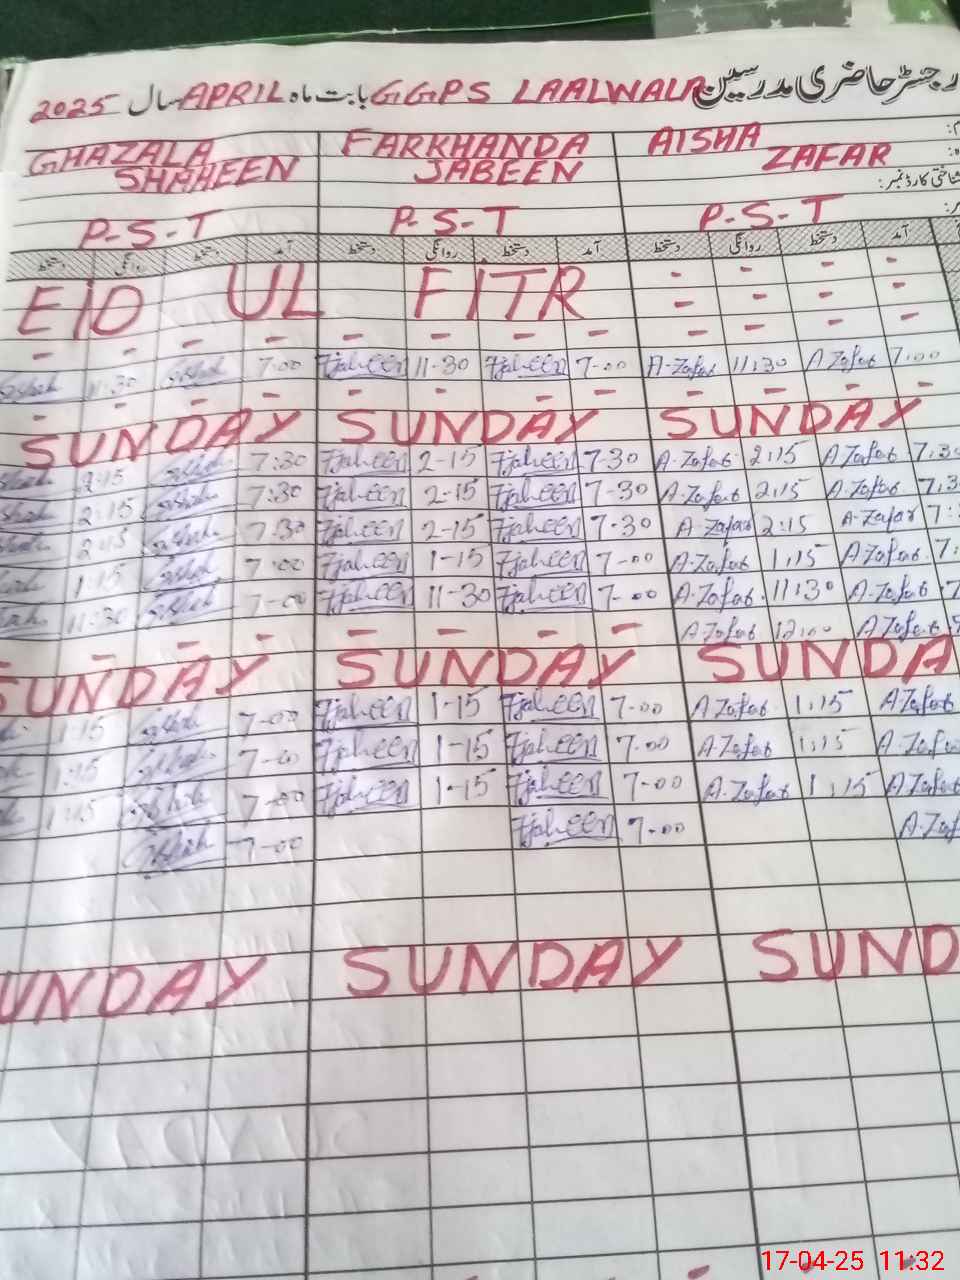 رجسٹر حاضری مدرسین GGPS LAALWALA بابت ماہ APRIL سال 2025
GHAZALA SHAHEEN FARKHANDA JABEEN AISHA ZAFAR
شناختی کارڈ نمبر:
P-S-T P-S-T P-S-T
دستخط روانگی دستخط آمد دستخط روانگی دستخط آمد دستخط روانگی دستخط آمد
EID UL FITR - - - -
- - - -
- - - - - - - - - - - -
11:30 7:00 Fjaheen 11-30 Fjaheen 7-00 A-Zafar 11:30 A Zafar 7:00
- - - - - - - - - - - -
SUNDAY SUNDAY SUNDAY
2:15 7:30 Fjaheen 2-15 Fjaheen 7-30 A-Zafar 2:15 A Zafar 7:30
2:15 7:30 Fjaheen 2-15 Fjaheen 7-30 A-Zafar 2:15 A-Zafar
2:15 7:30 Fjaheen 2-15 Fjaheen 7-30 A-Zafar 2:15 A-Zafar
1:15 7:00 Fjaheen 1-15 Fjaheen 7-00 A-Zafar 1:15 A Zafar
11:30 7-00 Fjaheen 11-30 Fjaheen 7-00 A-Zafar 11:30 A-Zafar
- - - - - - - - A Zafar 12:00 A Zafar
SUNDAY SUNDAY SUNDA
1:15 7-00 Fjaheen 1-15 Fjaheen 7-00 A-Zafar 1:15 A-Zafar
1:15 7-00 Fjaheen 1-15 Fjaheen 7-00 A-Zafar 1:15 A-Zafa
1:15 7-00 Fjaheen 1-15 Fjaheen 7-00 A-Zafar 1:15 A-Zafar
7-00 Fjaheen 7-00 A-Zaf
UNDAY SUNDAY SUND
17-04-25 11:32